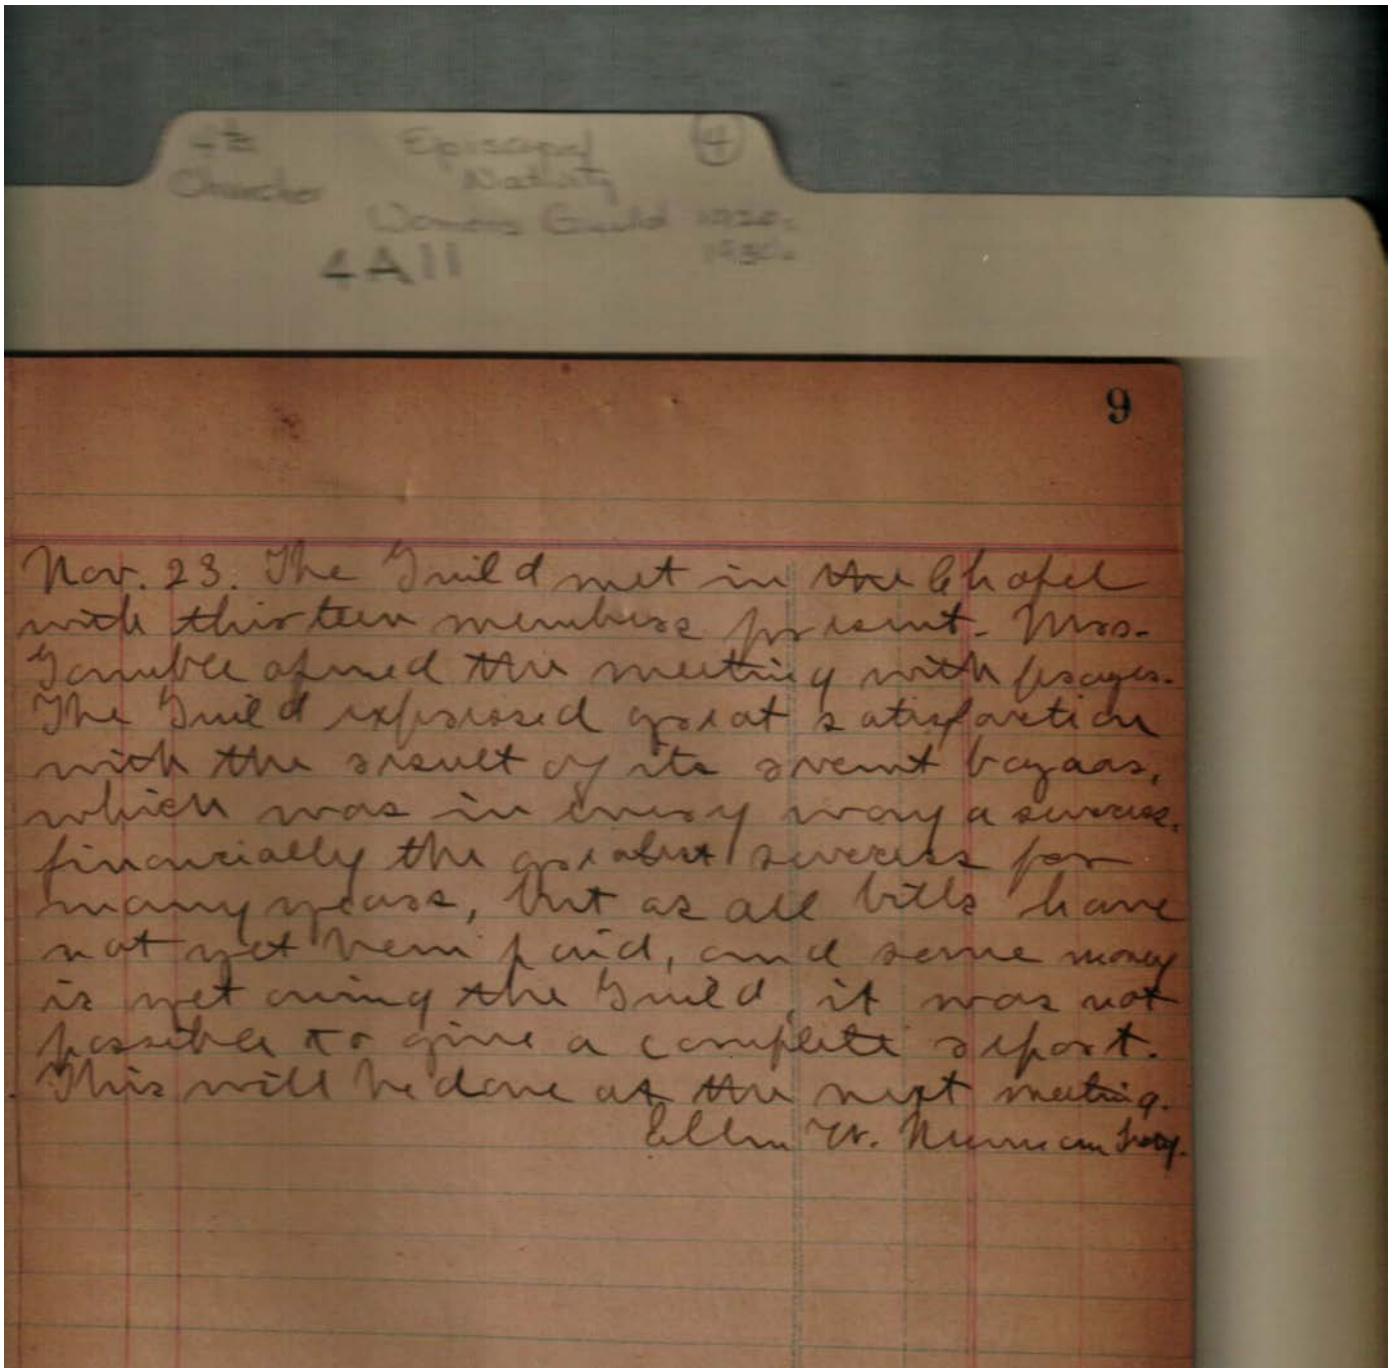 4th Episcopal 4
Churches Nativity
Womens Guild 1920s
4A11 1930s
9
Nov. 23. The Guild met in the Chapel
with thirteen members present. Mrs.
Gamble opened the meeting with prayer.
The Guild expressed great satisfaction
with the result of its recent bazaar,
which was in every way a success,
financially the greatest success for
many years, but as all bills have
not yet been paid, and some money
is yet owing the Guild, it was not
possible to give a complete report.
This will be done at the next meeting.
Ellen W.